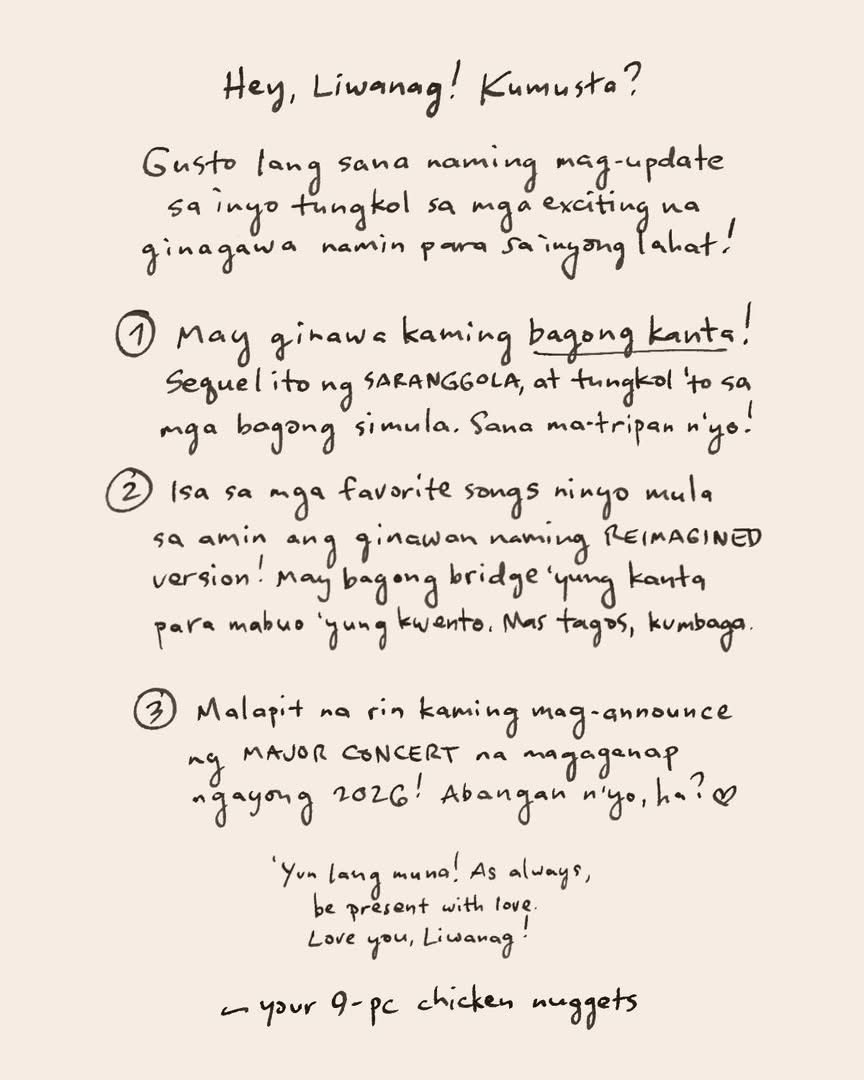 Hey, Liwanag! Kumusta?
Gusto lang sana naming mag-update
sa inyo tungkol sa mga exciting na
ginagawa namin para sa inyong lahat!
① May ginawa kaming bagong kanta!
Sequel ito ng SARANGGOLA, at tungkol 'to sa
mga bagong simula. Sana ma-tripan n'yo!
② Isa sa mga favorite songs ninyo mula
sa amin ang ginawan naming REIMAGINED
version! May bagong bridge 'yung kanta
para mabuo 'yung kwento. Mas tagos, kumbaga.
③ Malapit na rin kaming mag-announce
ng MAJOR CONCERT na magaganap
ngayong 2026! Abangan n'yo, ha? ♡
'Yun lang muna! As always,
be present with love.
Love you, Liwanag!
– your 9-pc chicken nuggets